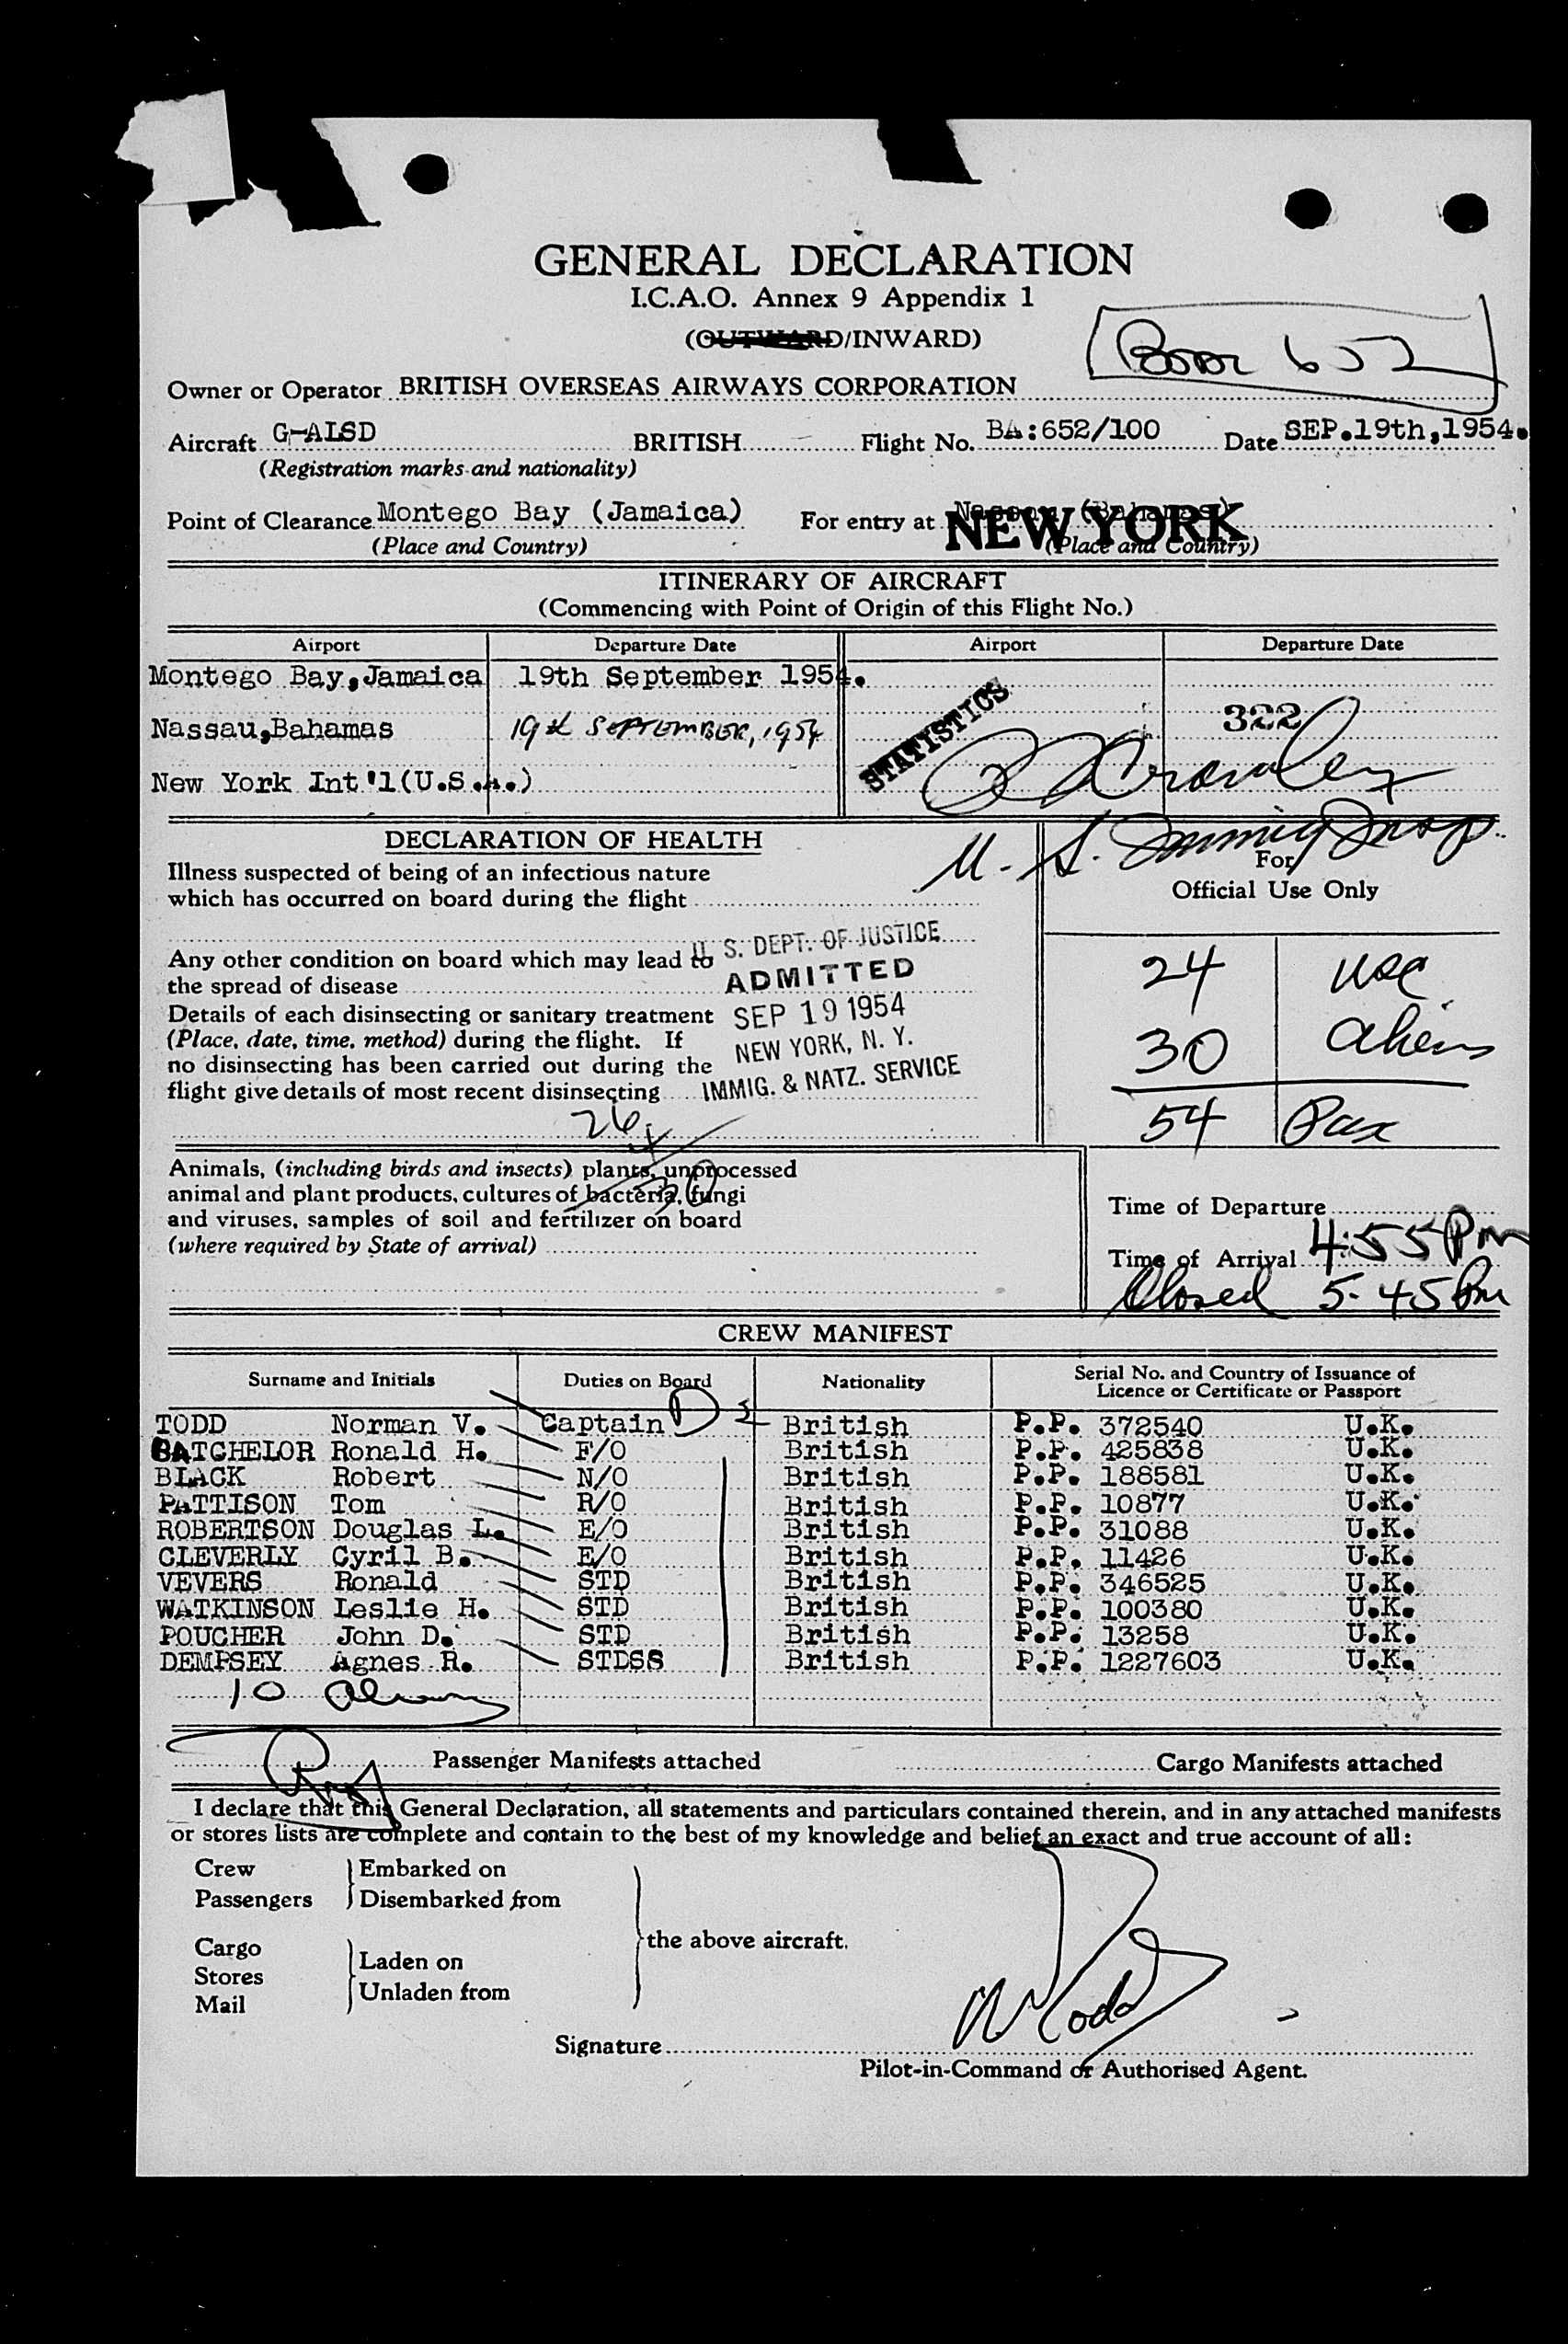 GENERAL DECLARATION
I.C.A.O. Annex 9 Appendix 1
(OUTWARD/INWARD)
652
Owner or Operator BRITISH OVERSEAS AIRWAYS CORPORATION
Aircraft G-ALSD BRITISH Flight No. BA:652/100 Date SEP.19th,1954.
(Registration marks and nationality)
Point of Clearance Montego Bay (Jamaica) For entry at Nassau (Bahamas) NEW YORK
(Place and Country) (Place and Country)
ITINERARY OF AIRCRAFT
(Commencing with Point of Origin of this Flight No.)
Airport Departure Date Airport Departure Date
Montego Bay,Jamaica 19th September 1954.
STATISTICS
322
Nassau,Bahamas 19th SEPTEMBER, 1954
Crowley
New York Int'l(U.S.A.)
U. S. Immig Insp.
DECLARATION OF HEALTH
For
Official Use Only
Illness suspected of being of an infectious nature
which has occurred on board during the flight
Any other condition on board which may lead to
the spread of disease
U. S. DEPT. OF JUSTICE
ADMITTED
SEP 19 1954
NEW YORK, N. Y.
IMMIG. & NATZ. SERVICE
24 USC
30 aliens
54 Pax
Details of each disinsecting or sanitary treatment
(Place, date, time, method) during the flight. If
no disinsecting has been carried out during the
flight give details of most recent disinsecting
26
30
Animals, (including birds and insects) plants, unprocessed
animal and plant products, cultures of bacteria, fungi
and viruses, samples of soil and fertilizer on board
(where required by State of arrival)
Time of Departure
Time of Arrival 4:55 Pm
Closed 5-45 Pm
CREW MANIFEST
Surname and Initials Duties on Board Nationality Serial No. and Country of Issuance of Licence or Certificate or Passport
TODD Norman V. Captain British P.P. 372540 U.K.
BATCHELOR Ronald H. F/O British P.P. 425838 U.K.
BLACK Robert N/O British P.P. 188581 U.K.
PATTISON Tom R/O British P.P. 10877 U.K.
ROBERTSON Douglas L. E/O British P.P. 31088 U.K.
CLEVERLY Cyril B. E/O British P.P. 11426 U.K.
VEVERS Ronald STD British P.P. 346525 U.K.
WATKINSON Leslie H. STD British P.P. 100380 U.K.
POUCHER John D. STD British P.P. 13258 U.K.
DEMPSEY Agnes R. STDSS British P.P. 1227603 U.K.
10
Passenger Manifests attached Cargo Manifests attached
I declare that this General Declaration, all statements and particulars contained therein, and in any attached manifests
or stores lists are complete and contain to the best of my knowledge and belief an exact and true account of all:
Crew Embarked on
Passengers Disembarked from
the above aircraft.
Cargo
Stores
Mail
Laden on
Unladen from
Signature N V Todd
Pilot-in-Command or Authorised Agent.